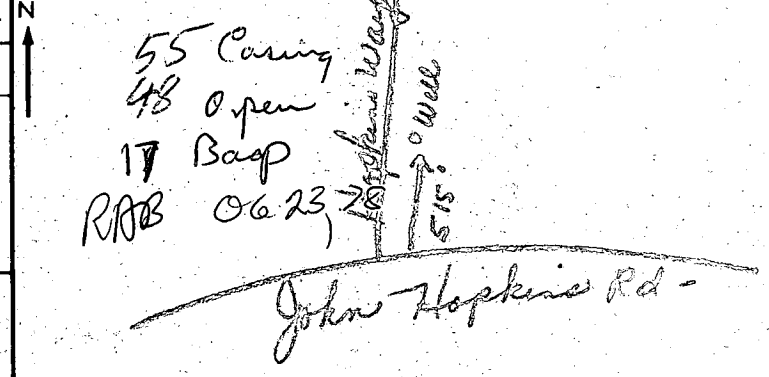 N
55 Casing
48 Open
17 Bags
RAB 06 23, 78
Hopkins Way
Well
515'
John Hopkins Rd -